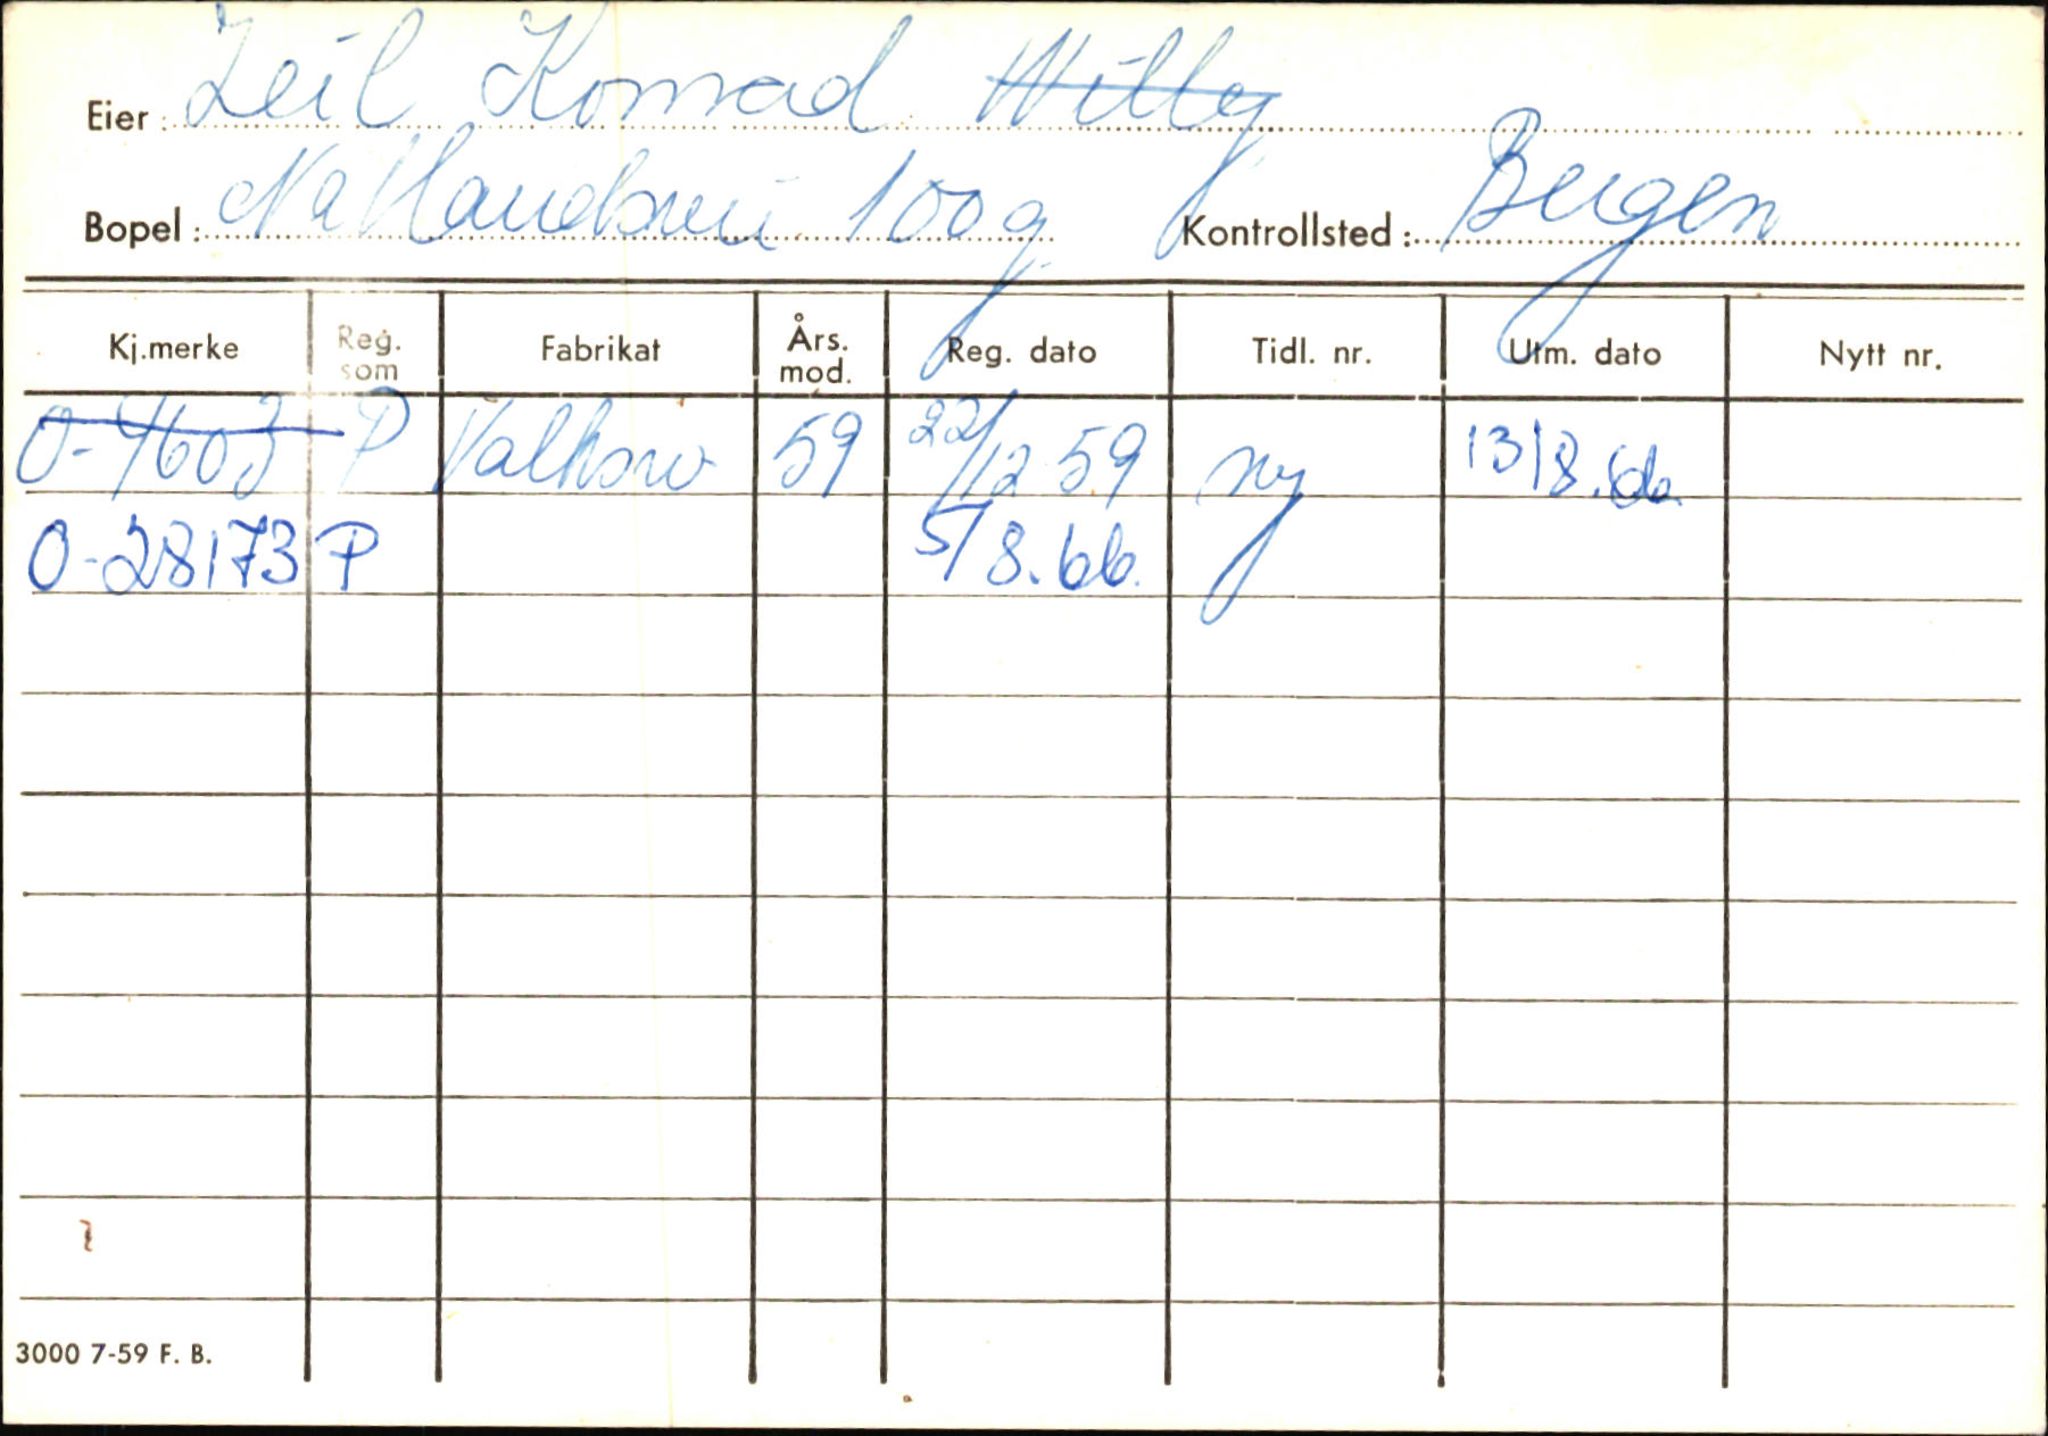 Eier: Zeil Konrad Willy
Bopel: Nattlandsvei 100g Kontrollsted: Bergen
Kj.merke Reg. som Fabrikat Års. mod. Reg. dato Tidl. nr. Utm. dato Nytt nr.
O-4603 P 59 22/12 59 ny 13/8.66
O-28173 P 5/8.66.
3000 7-59 F. B.